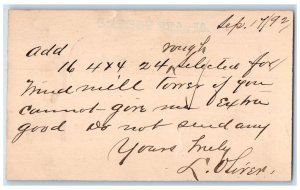 Sep. 17/92
add rough
16 4x4 24 selected for
Wind mill Tower if you
cannot give me Extra
good do not send any
Yours Truly
L. Oliver.